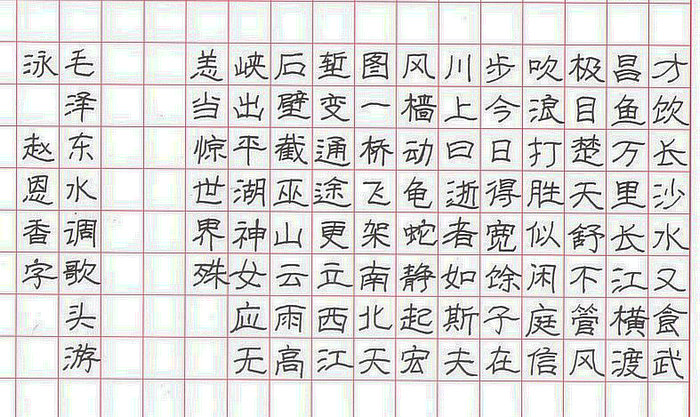 才饮长沙水又食武
昌鱼万里长江横渡
极目楚天舒不管风
吹浪打胜似闲庭信
步今日得宽馀子在
川上曰逝者如斯夫
风樯动龟蛇静起宏
图一桥飞架南北天
堑变通途更立西江
石壁截巫山云雨高
峡出平湖神女应无
恙当惊世界殊
毛泽东水调歌头游
泳 赵恩香字